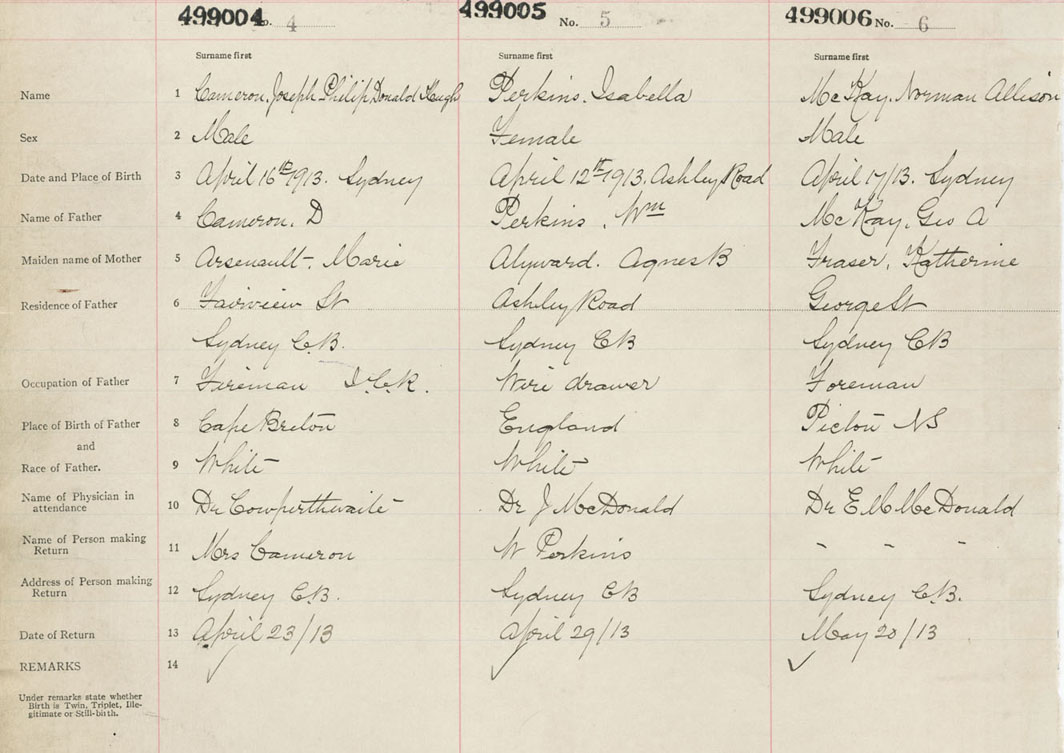 499004 No. 4 499005 No. 5 499006 No. 6
Surname first Surname first Surname first
Name 1 Cameron, Joseph Philip Donald Hugh Perkins, Isabella McKay, Norman Allison
Sex 2 Male Female Male
Date and Place of Birth 3 April 16th 1913. Sydney April 12th 1913. Ashley Road April 17/13. Sydney
Name of Father 4 Cameron. D Perkins, Wm McKay, Geo A
Maiden name of Mother 5 Arsenault. Marie Alyward. Agnes B Fraser, Katherine
Residence of Father 6 Fairview St Ashley Road George St
Sydney C.B. Sydney CB Sydney CB
Occupation of Father 7 Fireman I.C.R. Wire drawer Foreman
Place of Birth of Father 8 Cape Breton England Pictou NS
and
Race of Father. 9 White White White
Name of Physician in
attendance 10 Dr Cowperthwaite Dr J McDonald Dr E M McDonald
Name of Person making
Return 11 Mrs Cameron W Perkins - - -
Address of Person making
Return 12 Sydney C.B. Sydney CB Sydney C.B.
Date of Return 13 April 23/13 April 29/13 May 20/13
REMARKS 14
Under remarks state whether
Birth is Twin, Triplet, Ille-
gitimate or Still-birth.